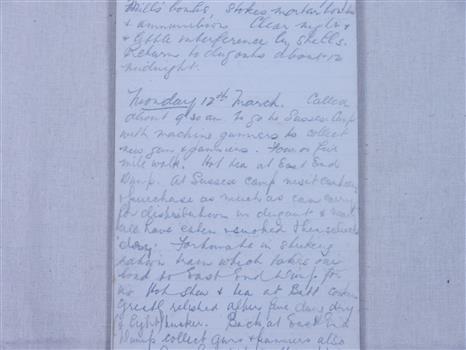 Mills bombs, Stokes mortar bombs
& ammunition. Clear night &
& little interference by shells.
Return to dugouts about 12
midnight.
Monday 12th March. Called
about 9 30 am to go to Sussex Camp
with machine gunners to collect
new gun & panniers. Four or five
mile walk. Hot tea at East End
Dump. At Sussex camp visit canteen
& purchase as much as can carry
for distribution in dugout &
all have eaten & smoked themselves
Fortunate in striking
ration train which takes our
load to East End Dump for
us Hot stew & tea at Batt cookers
Greatly relished after five days dry
& Light tucker. Back at East End
Dump collect guns & panniers also